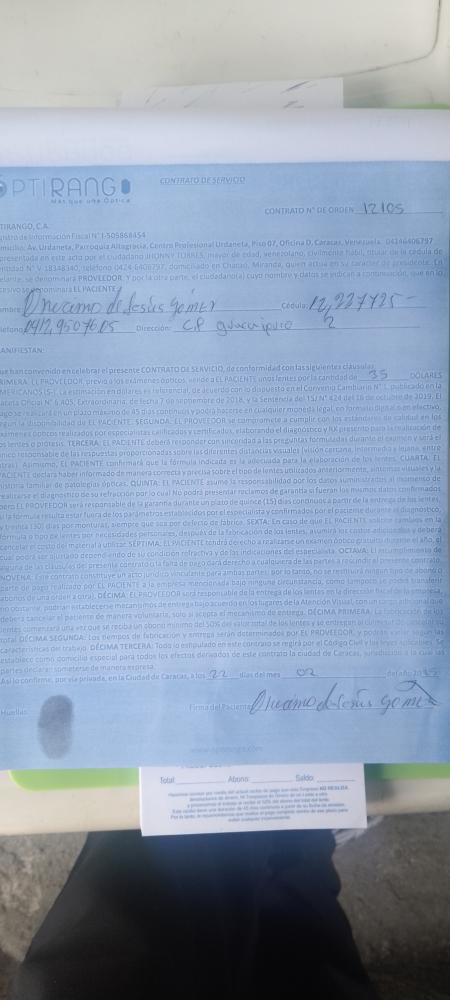 OPTIRANGO
Más que una Óptica
CONTRATO DE SERVICIO
CONTRATO N° DE ORDEN 12105
TIRANGO, C.A.
gistro de Información Fiscal N° I-505868454
micilio: Av. Urdaneta, Parroquia Altagracia, Centro Profesional Urdaneta, Piso 07, Oficina D, Caracas, Venezuela. 04246406797
presentada en este acto por el ciudadano JHONNY TORRES, mayor de edad, venezolano, civilmente hábil, titular de la cédula de
ntidad N° V-18348340, teléfono 0424-6406797, domiciliado en Chacao, Miranda, quien actúa en su carácter de presidente. En
elante, se denominará PROVEEDOR. Y por la otra parte, el ciudadano(a) cuyo nombre y datos se indican a continuación, que en lo
cesivo se denominará EL PACIENTE
mbre de Jesús Gómez Cédula: 12,227725-
léfono 0412,9507605 Dirección: C.P guaicaipuro 2
ANIFIESTAN:
ue han convenido en celebrar el presente CONTRATO DE SERVICIO, de conformidad con las siguientes cláusulas:
RIMERA. EL PROVEEDOR, previo a los exámenes ópticos, vende a EL PACIENTE unos lentes por la cantidad de 35 DÓLARES
MERICANOS ($-). La estimación en dólares es referencial, de acuerdo con lo dispuesto en el Convenio Cambiario N°1, publicado en la
aceta Oficial N° 6.405, Extraordinaria, de fecha 7 de septiembre de 2018, y la Sentencia del TSJ N° 424 del 16 de octubre de 2019. El
ago se realizará en un plazo máximo de 45 días continuos y podrá hacerse en cualquier moneda legal, en formato digital o en efectivo,
egún la disponibilidad de EL PACIENTE. SEGUNDA: EL PROVEEDOR se compromete a cumplir con los estándares de calidad en los
xámenes ópticos realizados por especialistas calificados y certificados, elaborando el diagnóstico y RX prescrito para la realización de
os lentes o prótesis. TERCERA. EL PACIENTE deberá responder con sinceridad a las preguntas formuladas durante el examen y será el
único responsable de las respuestas proporcionadas sobre las diferentes distancias visuales (visión cercana, intermedia y lejana, entre
otras). Asimismo, EL PACIENTE confirmará que la fórmula indicada es la adecuada para la elaboración de los lentes. CUARTA. EL
PACIENTE declara haber informado de manera correcta y precisa sobre el tipo de lentes utilizados anteriormente,
familiar de patologías ópticas. QUINTA: EL PACIENTE asume la responsabilidad por los datos suministrados al momento de
realizarse el diagnóstico de su refracción por lo cual No podrá presentar reclamos de garantía si fueran los mismos datos confirmados
pero EL PROVEEDOR será responsable de la garantía durante un plazo de quince (15) días continuos a partir de la entrega de los lentes,
si la fórmula resulta estar fuera de los parámetros establecidos por el especialista y confirmados por el paciente durante el diagnóstico,
y treinta (30) días por monturas, siempre que sea por defecto de fábrica. SEXTA: En caso de que EL PACIENTE solicite cambios en la
fórmula o tipo de lentes por necesidades personales, después de la fabricación de los lentes, asumirá los costos adicionales y deberá
cancelar el costo del material a utilizar. SÉPTIMA. EL PACIENTE tendrá derecho a realizarse un examen óptico gratuito durante el año, el
cual podrá ser ajustado dependiendo de su condición refractiva y de las indicaciones del especialista. OCTAVA: El incumplimiento de
alguna de las cláusulas del presente contrato o la falta de pago dará derecho a cualquiera de las partes a rescindir el presente contrato.
NOVENA: Este contrato constituye un acto jurídico vinculante para ambas partes; por lo tanto, no se reembolsará ningún tipo de abono o
parte de pago realizado por EL PACIENTE a la empresa mencionada bajo ninguna circunstancia, como tampoco se podrá transferir
abonos de una orden a otra). DÉCIMA: EL PROVEEDOR será responsable de la entrega de los lentes en la dirección fiscal de la empresa,
no obstante, podrían establecerse mecanismos de entrega bajo acuerdo en los lugares de la Atención Visual, con un cargo adicional que
deberá cancelar el paciente de manera voluntaria, solo si acepta el mecanismo de entrega. DÉCIMA PRIMERA: La fabricación de
lentes comenzará una vez que se reciba un abono mínimo del 50% del valor total de los lentes y se entregarán al cancelar
total. DÉCIMA SEGUNDA: Los tiempos de fabricación y entrega serán determinados por EL PROVEEDOR, y podrán variar según las
características del trabajo. DÉCIMA TERCERA: Todo lo estipulado en este contrato se regirá por el Código Civil y las leyes aplicables. Se
establece como domicilio especial para todos los efectos derivados de este contrato la ciudad de Caracas, jurisdicción a la cual las
partes declaran someterse de manera expresa.
Así lo confirme, por vía privada, en la Ciudad de Caracas, a los 22 días del mes 02 del año 20
Huellas: Firma del Paciente de Jesús Gómez
www.optirango.com
Total: Abono: Saldo: